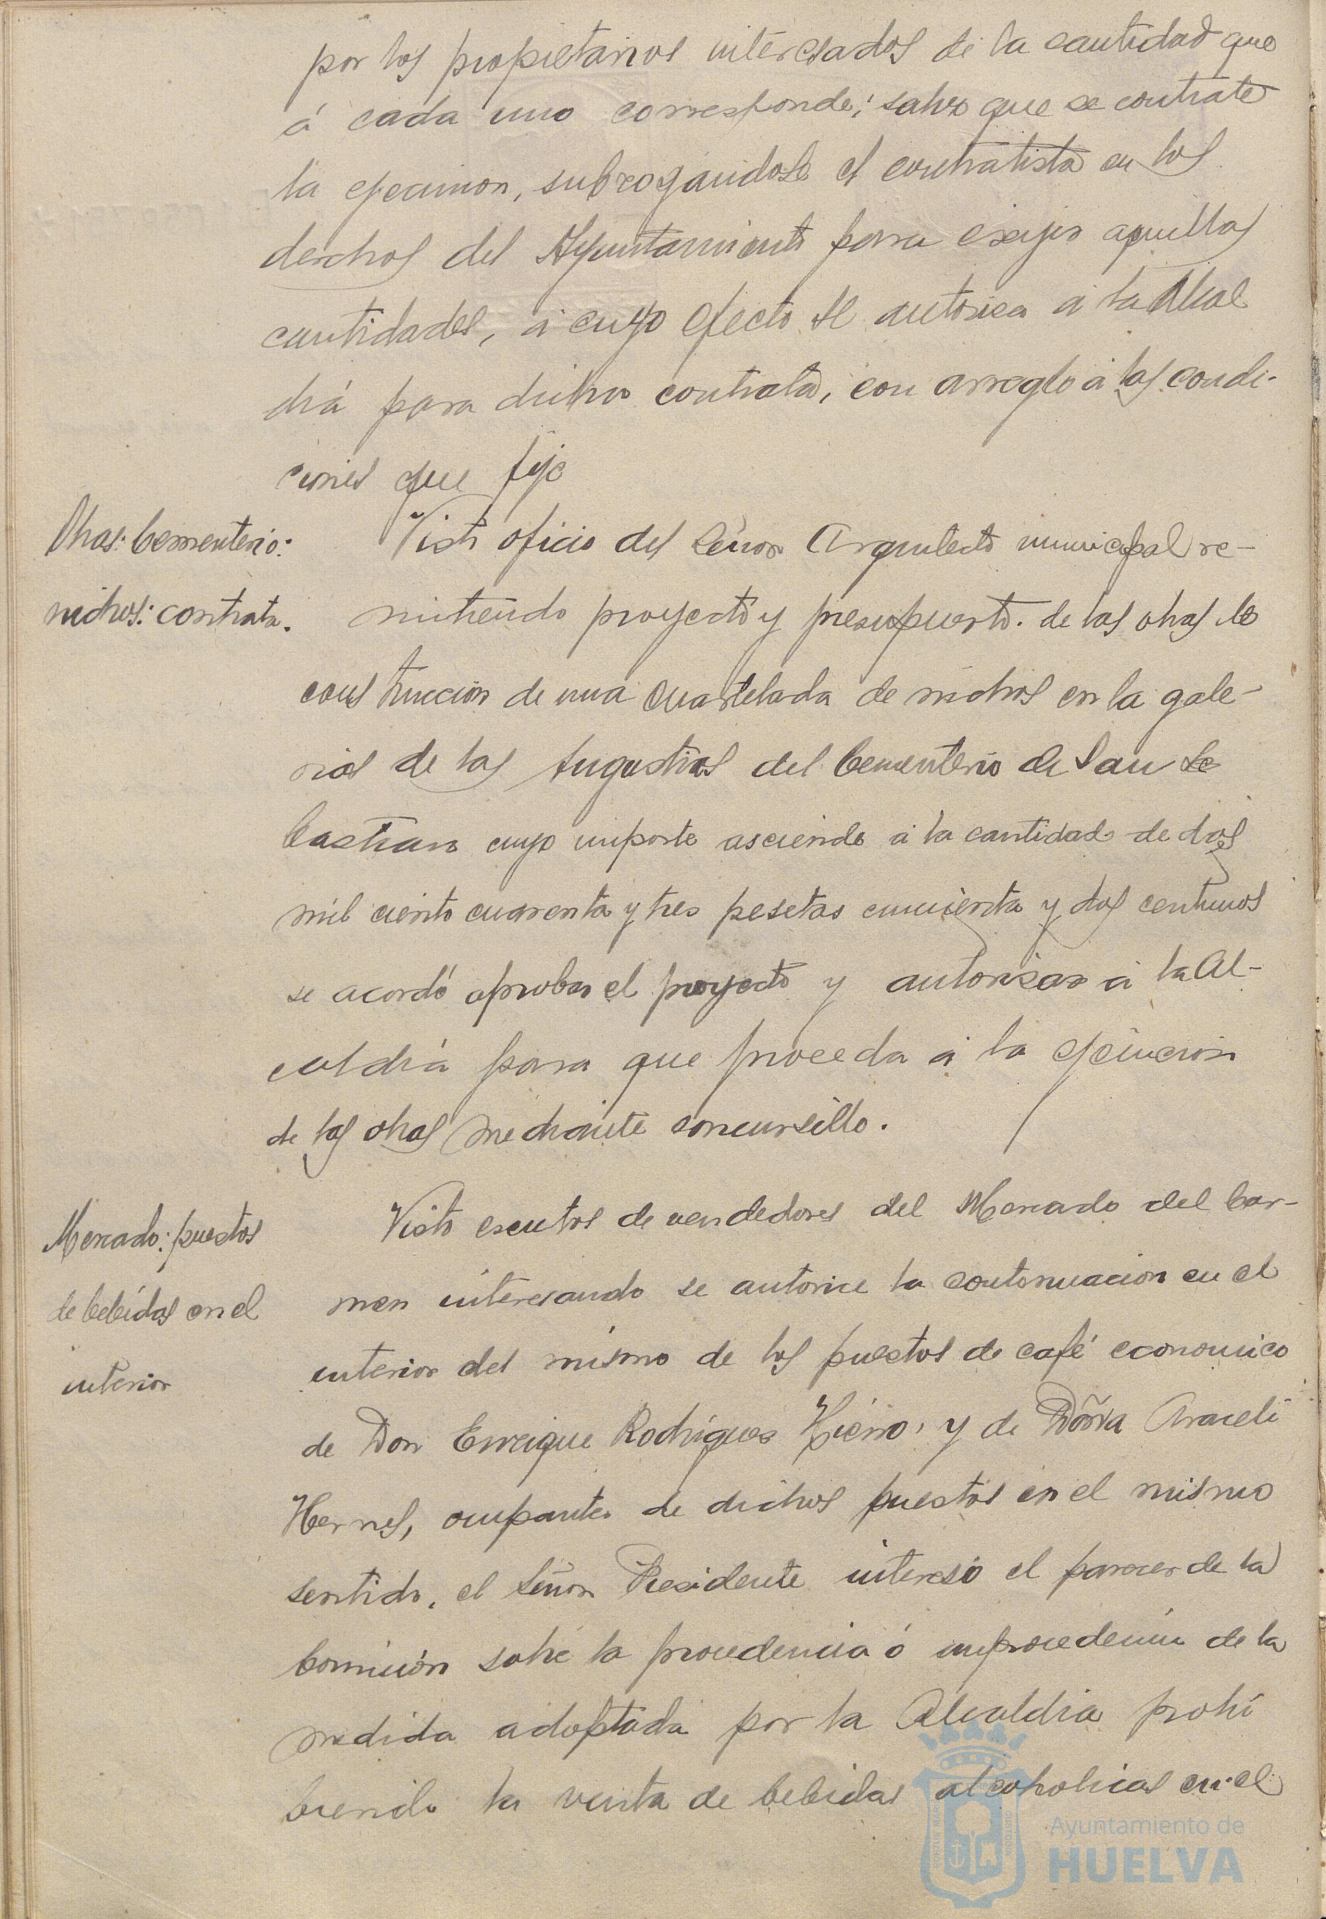 por los propietarios interesados de la cantidad que
á cada uno corresponde; salvo que se contrate
la ejecucion, subrogandose el contratista en los
derechos del Ayuntamiento para exigir aquellas
cantidades, á cuyo efecto se autoriza á la Alcal
dia para dicha contrata, con arreglo á las condi-
ciones que fije
Obras: Cementerio:
nichos: contrata.
Visto oficio del Señor Arquitecto municipal re-
mitiendo proyecto y presupuesto de las obras de
construccion de una cuartelada de nichos en la gale-
ria de las Angustias del Cementerio de San Se
bastian cuyo importe asciende á la cantidad de dos
mil ciento cuarenta y tres pesetas cincuenta y dos centimos
se acordó aprobar el proyecto y autorizar á la Al-
caldia para que proceda á la ejecucion
de las obras mediante concursillo.
Mercado: puestos
de bebidas en el
interior
Visto escritos de vendedores del Mercado del Car-
men interesando se autorice la continuacion en el
interior del mismo de los puestos de café economico
de Don Enrique Rodrigues Hierro, y de Doña Araceli
, ocupantes de dichos puestos en el mismo
sentido, el Señor Presidente interesó el parecer de la
Comisión sobre la procedencia ó improcedencia de la
medida adoptada por la Alcaldia prohi
biendo la venta de bebidas alcoholicas en el
Ayuntamiento de
HUELVA